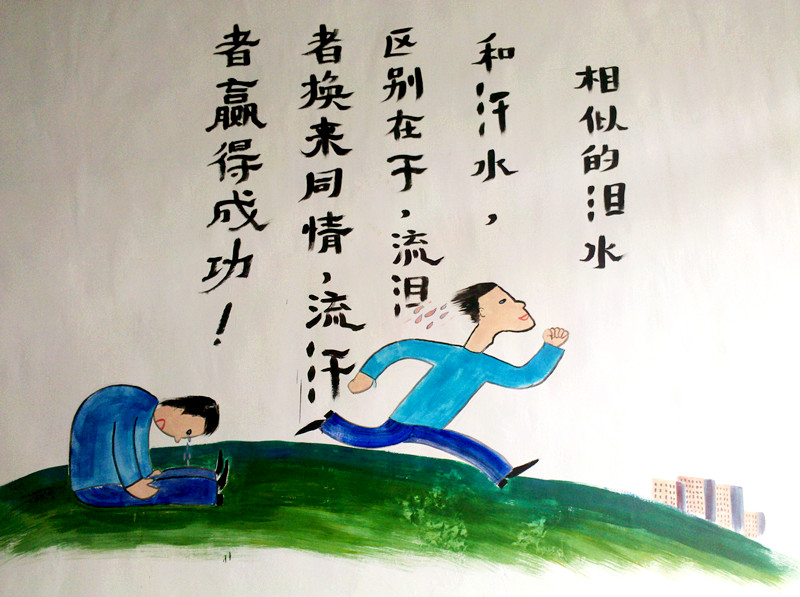 相似的泪水
和汗水，
区别在于，流泪
者换来同情，流汗
者赢得成功！